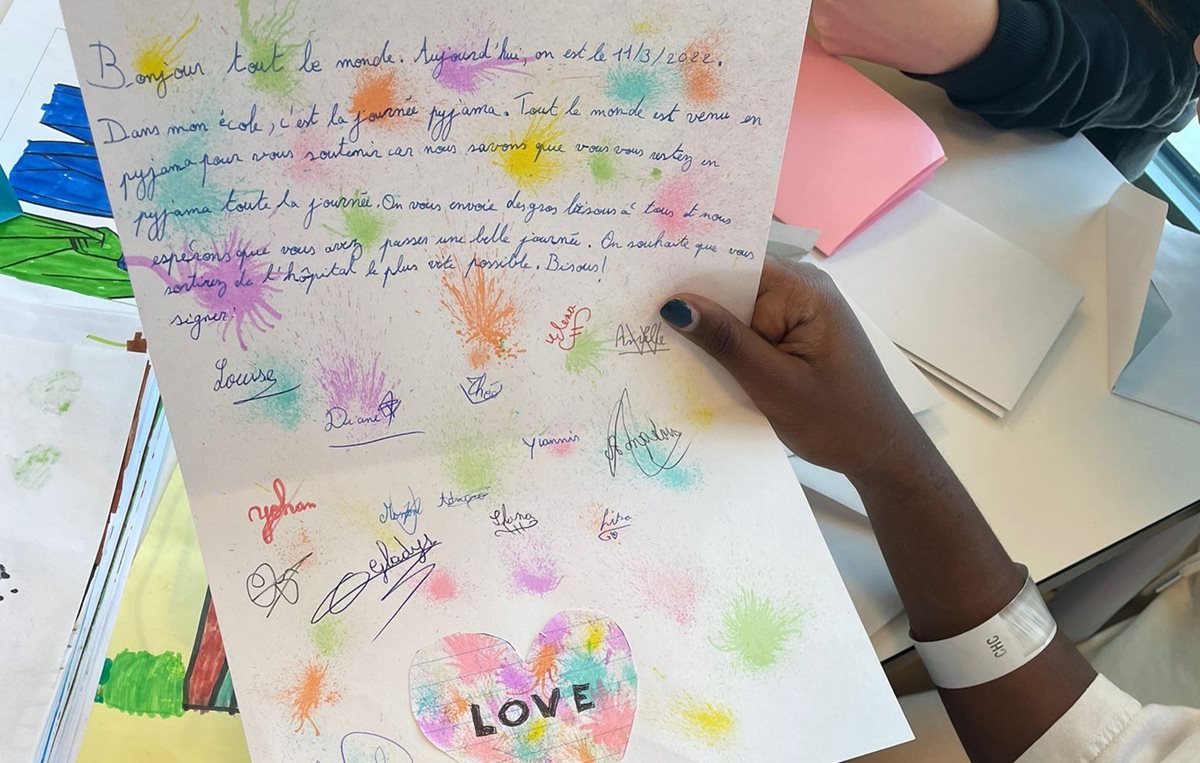 Bonjour tout le monde. Aujourd'hui, on est le 11/3/2022.
Dans mon école, c'est la journée pyjama. Tout le monde est venu en
pyjama pour vous soutenir car nous savons que vous vous restez en
pyjama toute la journée. On vous envoie des gros bisous à tous et nous
espérons que vous avez passer une belle journée. On souhaite que vous
sortirez de l'hôpital le plus vite possible. Bisous!
signer:
Louise
Diane
Théo
Yiannis
yohan
Ilana
Lisa
Gladys
LOVE
CHC